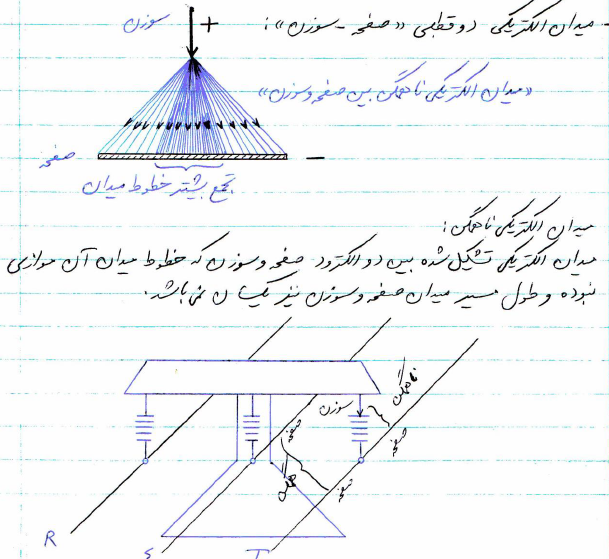 - میدان الکتریکی دو قطبی «صفحه - سوزن»:
سوزن
+
«میدان الکتریکی ناهمگن بین صفحه و سوزن»
صفحه
−
تجمع بیشتر خطوط میدان
میدان الکتریکی ناهمگن:
میدان الکتریکی تشکیل شده بین دو الکترود صفحه و سوزن که خطوط میدان آن موازی
نبوده و طول مسیر میدان صفحه و سوزن نیز یکسان نمی باشد.
سوزن
ناهمگن
صفحه
صفحه
همگن
صفحه
R
S
T